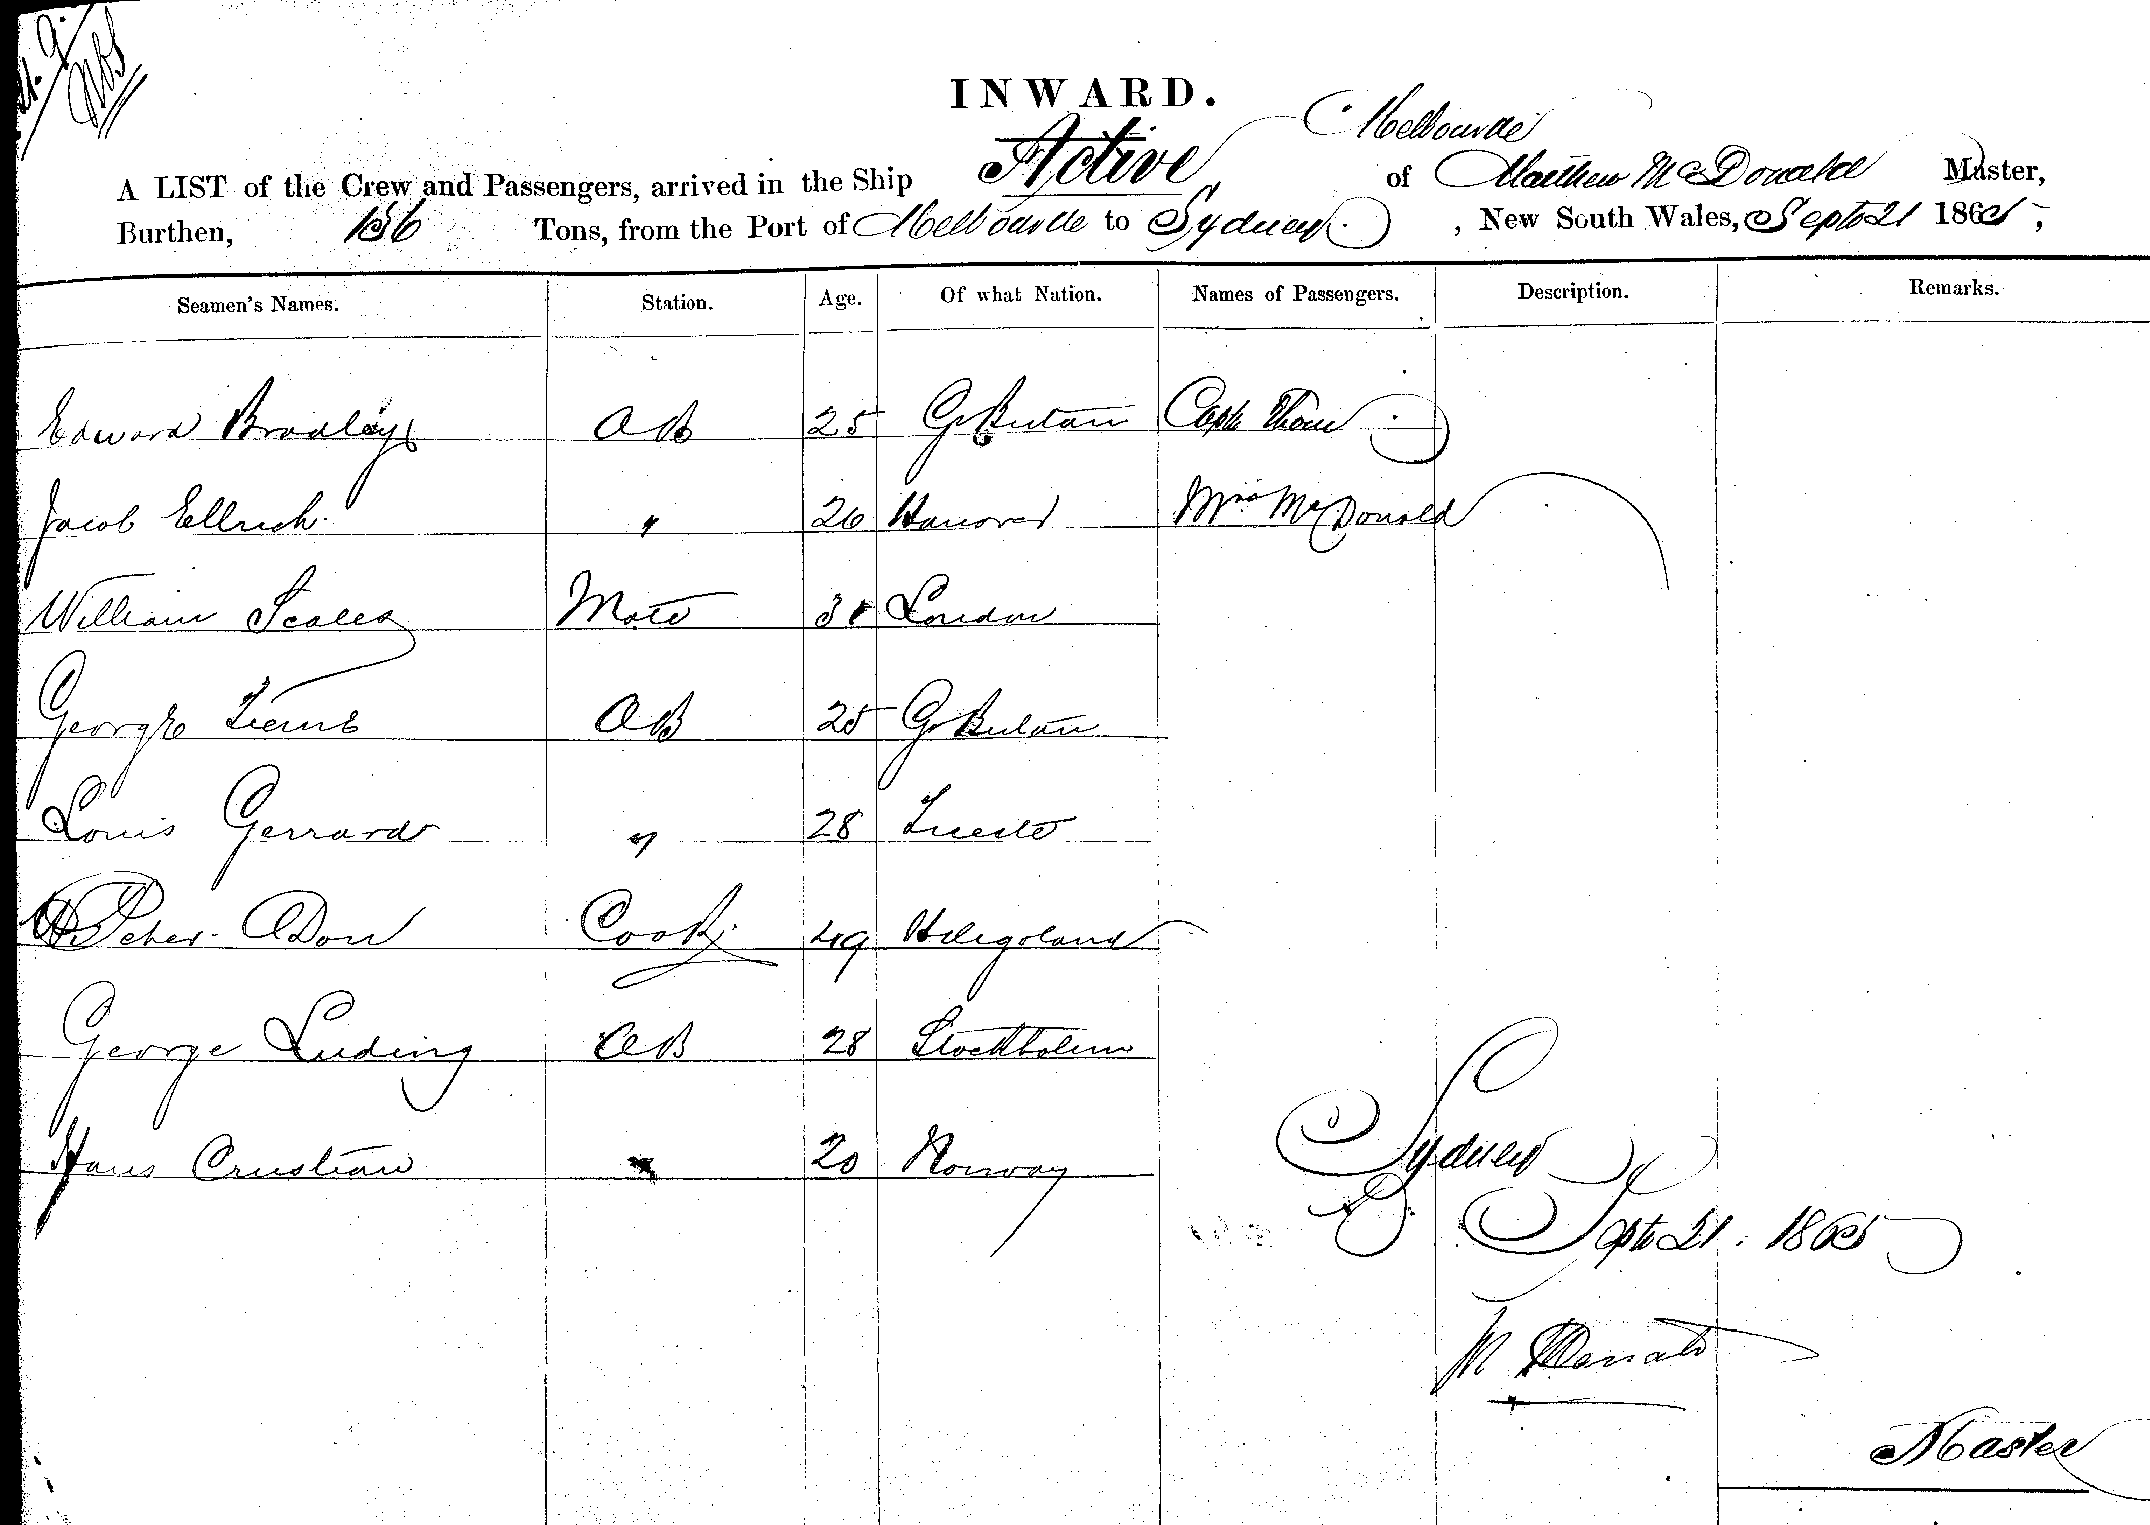 INWARD.
Melbourne
A LIST of the Crew and Passengers, arrived in the Ship Active of Matthew McDonald Master,
Burthen, 136 Tons, from the Port of Melbourne to Sydney , New South Wales, Septr 21 1865,
Seamen's Names. Station. Age. Of what Nation. Names of Passengers. Description. Remarks.
Edward Bradley AB 25 Gr Britain Capt
Jacob Ellrich " 26 Hanover Mrs McDonald
William Scales Mate 31 London
George AB 25 Gr Britain
Louis Gerrard " 28 Trieste
Peter Don Cook 49 Heligoland
George Luding AB 28 Stockholm
Hans Cristian " 20 Norway
Sydney
Septr 21. 1865
M McDonald
Master